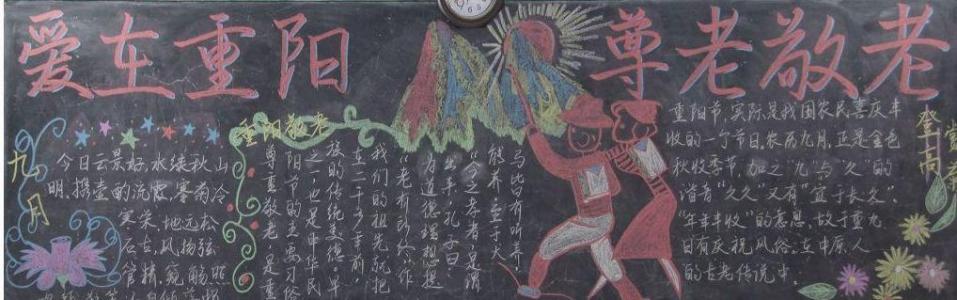 爱在重阳
尊老敬老
九月
今日云景好,水绿秋山
明。携壶酌流霞,
寒荣
地远松
石古,风扬弦
管清。窥觞照
重阳敬老
尊重敬老是重
阳节的主要习俗
之一,也是中华民
族的传统美德。早
在二千多年前,
我们的祖先就把
"老有所终"作
为道德理想提
出来,孔子曰:
"今之孝者,是谓
能养,至于犬
马,皆有听养
重阳节,实际是我国农民喜庆丰
收的一个节日,农历九月,正是金色
秋收季节,加之"九"与"久"的
谐音"久久"又有"宜于长久",
"年年丰收"的意思,故于重九
日有庆祝风俗。在中原人
的古老传说中,
登高
赏菊